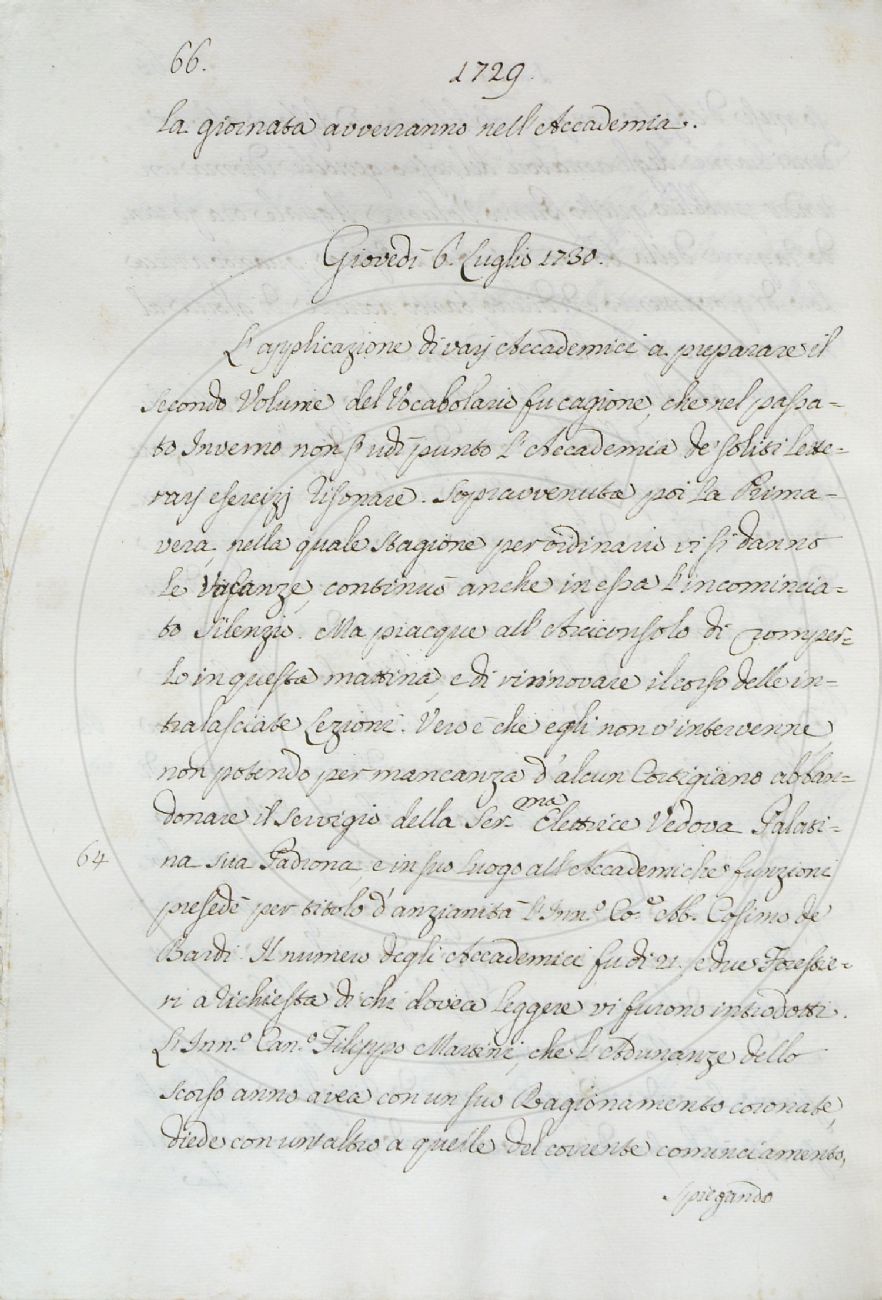 66.
1729.
la giornata avverranno nell'Accademia.
Giovedì 6. Luglio 1730.
L'applicazione di varj Accademici a preparare il
secondo Volume del Vocabolario fu cagione, che nel passa-
to Inverno non s'udì punto l'Accademia de' soliti lette-
rarj esercizj risonare. Sopravvenuta poi la Prima-
vera, nella quale stagione per ordinario vi si danno
le Vacanze, continuò anche in essa l'incomincia-
to silenzio. Ma piacque all'Arciconsolo di romper-
lo in questa mattina, e di rinnovare il corso delle in-
tralasciate Lezioni. Vero è che egli non v'intervenne,
non potendo per mancanza d'alcun Cortigiano abban-
donare il servigio della Ser.ma Elettrice Vedova Palati-
64
na sua Padrona, e in suo luogo all'Accademiche funzioni
presedè per titolo d'anzianità l'Inn.o Co.e Ab. Cosimo de
Bardi. Il numero degli Accademici fu di 21. e due Forestie-
ri a richiesta di chi dovea leggere vi furono introdotti.
L'Inn.o Can.o Filippo Martini, che l'Adunanze dello
scorso anno avea con un suo Ragionamento coronate,
diede con un'altro a quelle del corrente cominciamento,
spiegando